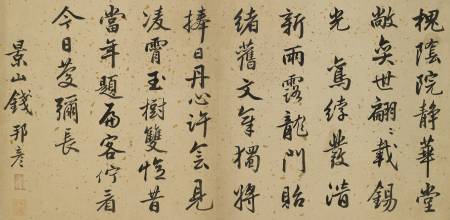 槐陰院静華堂
敞奕世翩翩載錫
光綍發清
新雨露龍門貽
緒舊文章獨將
捧日丹心許會見
凌霄玉樹雙憶昔
當年題客佇看
今日慶彌長
景山錢邦彥